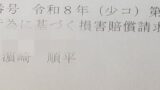 番号 令和8年（少コ）第
行為に基づく損害賠償請求
濵崎 順平